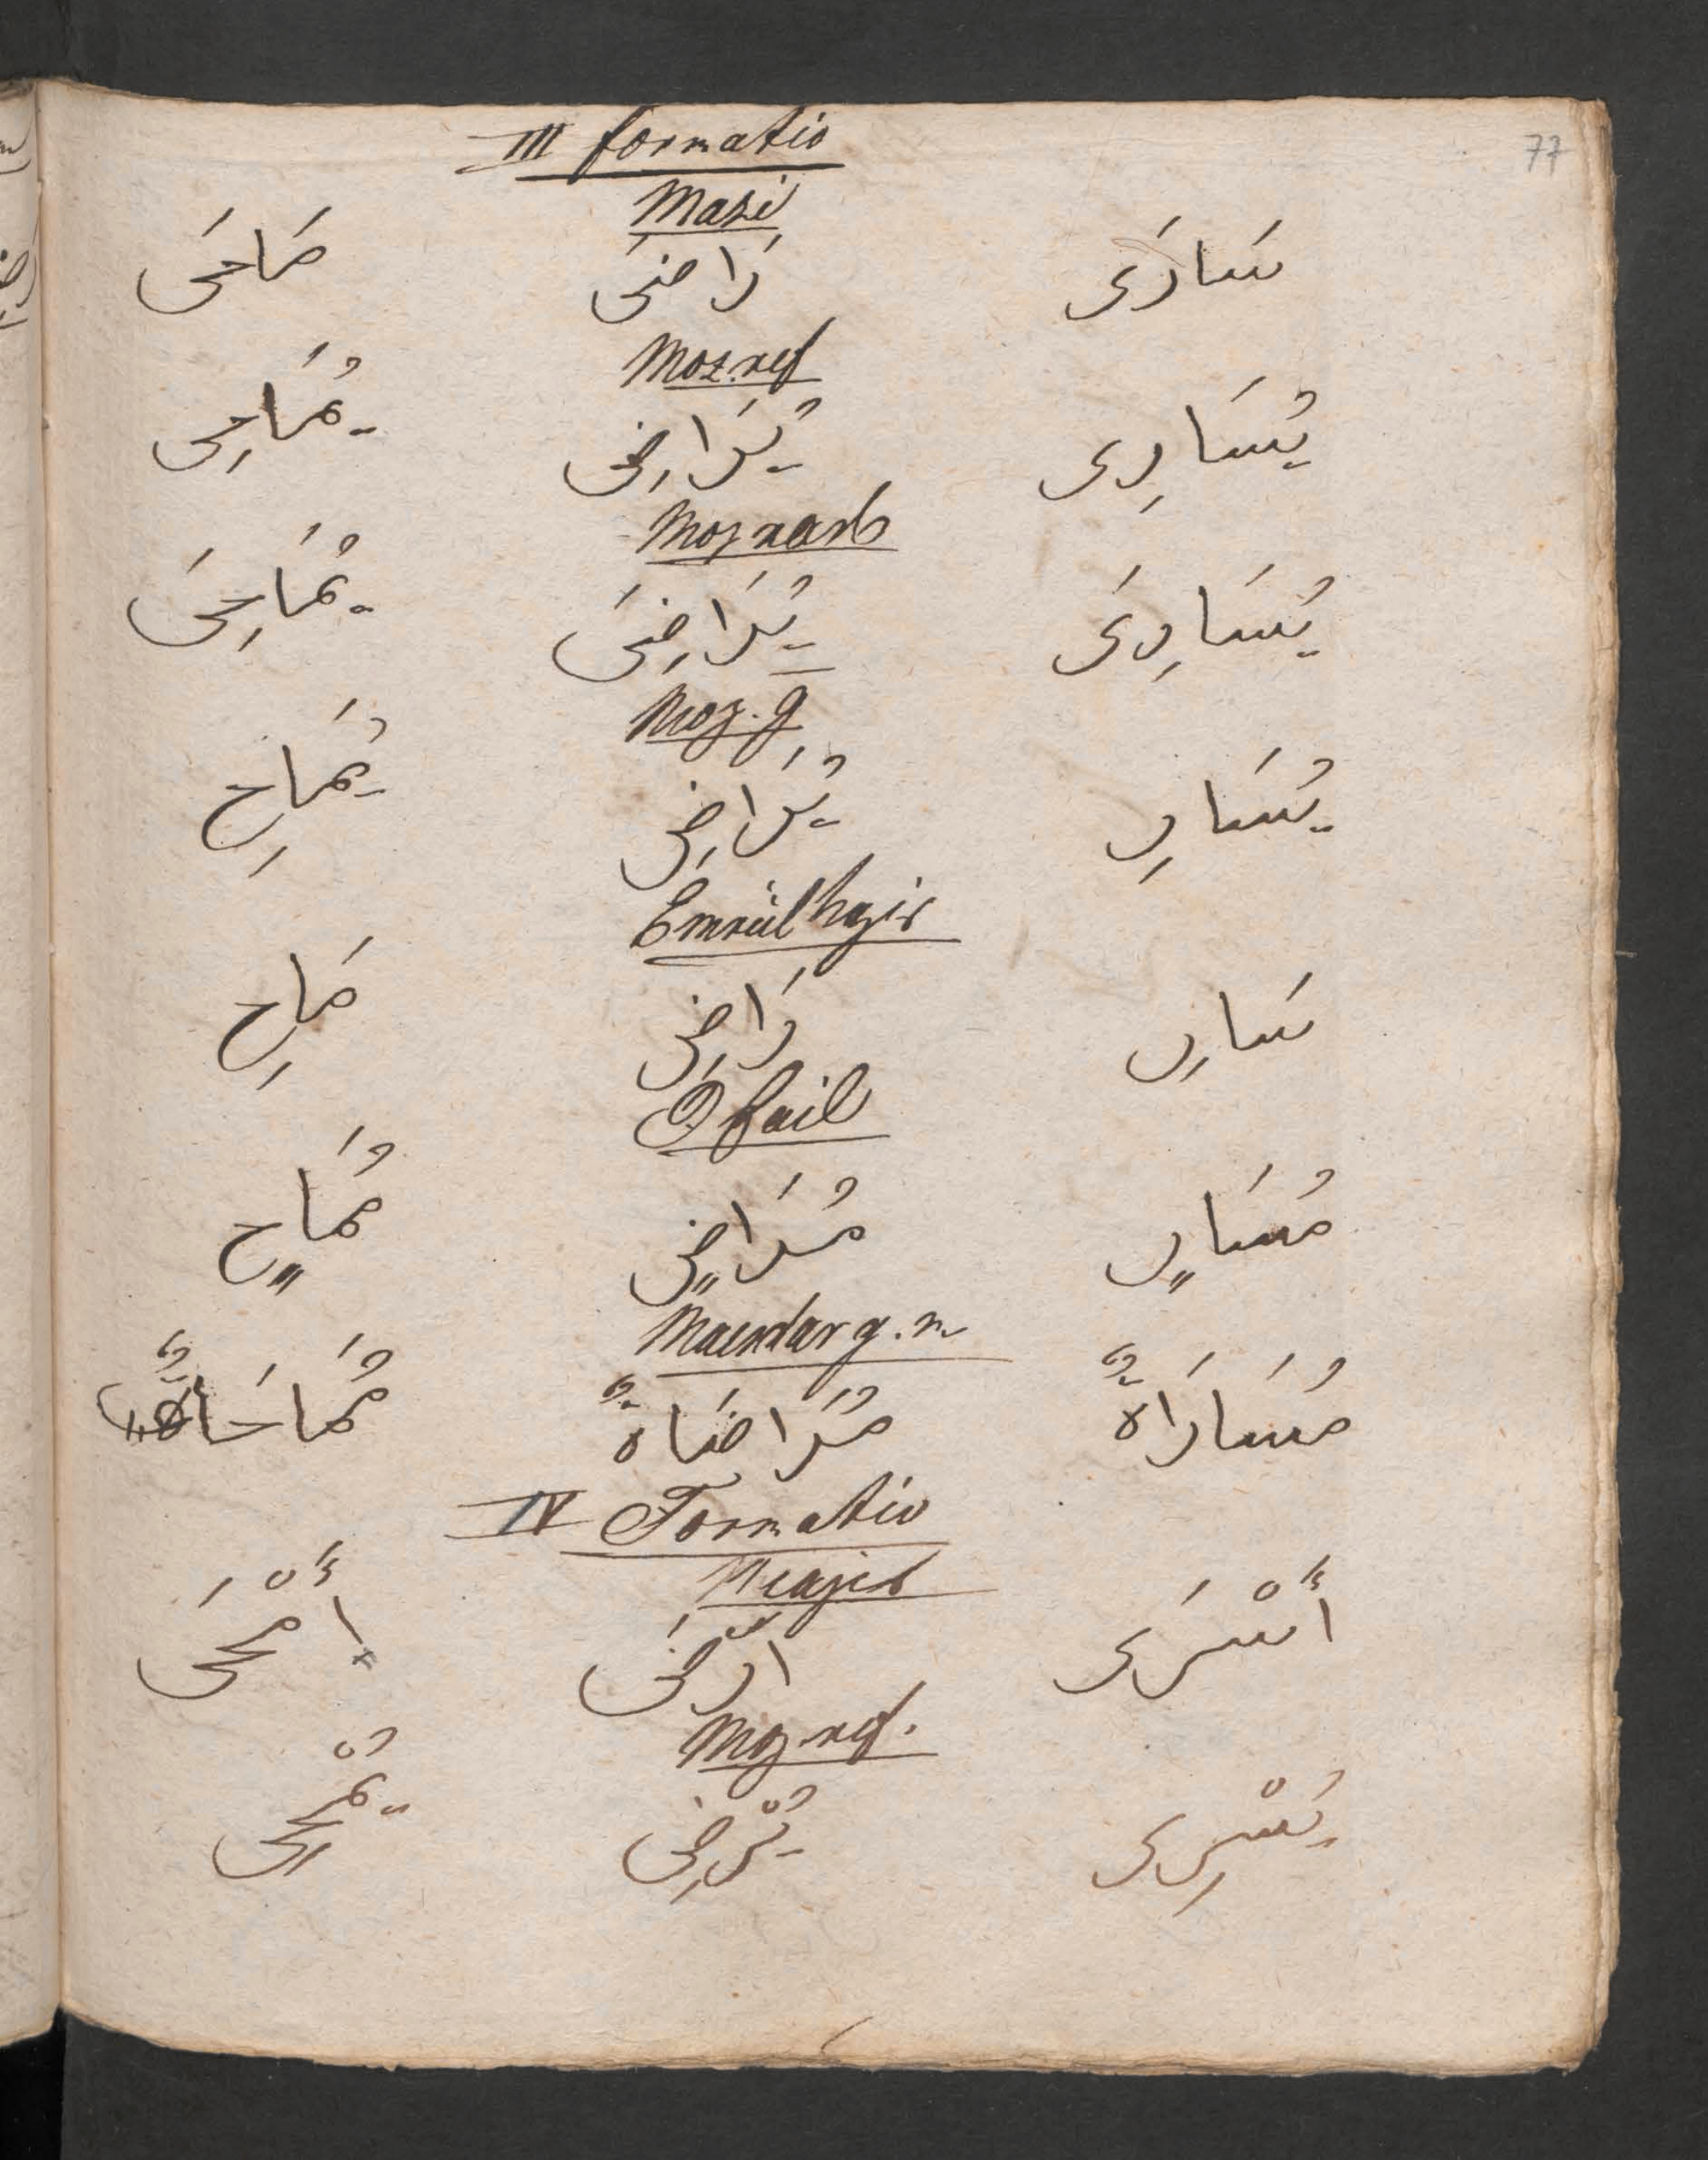 77
III formatio
Mazi
سَارَى رَاضَى مَاحَى
Moz. ref
يُسَارِى يُرَاضِى يُمَاحِى
Moz nasb
يُسَارِىَ يُرَاضِىَ يُمَاحِىَ
Moz. g
يُسَارِ يُرَاضِ يُمَاحِ
Emrül hazir
سَارِ رَاضِ مَاحِ
I fail
مُسَارٍ مُرَاضٍ مُمَاحٍ
Masdar g. m
مُسَارَاةٌ مُرَاضَاةٌ
IV Formatio
أَسْرَى ارْضَى أَمْحَى
Moz. ref.
يُسْرِى يُرْضِى يُمْحِى